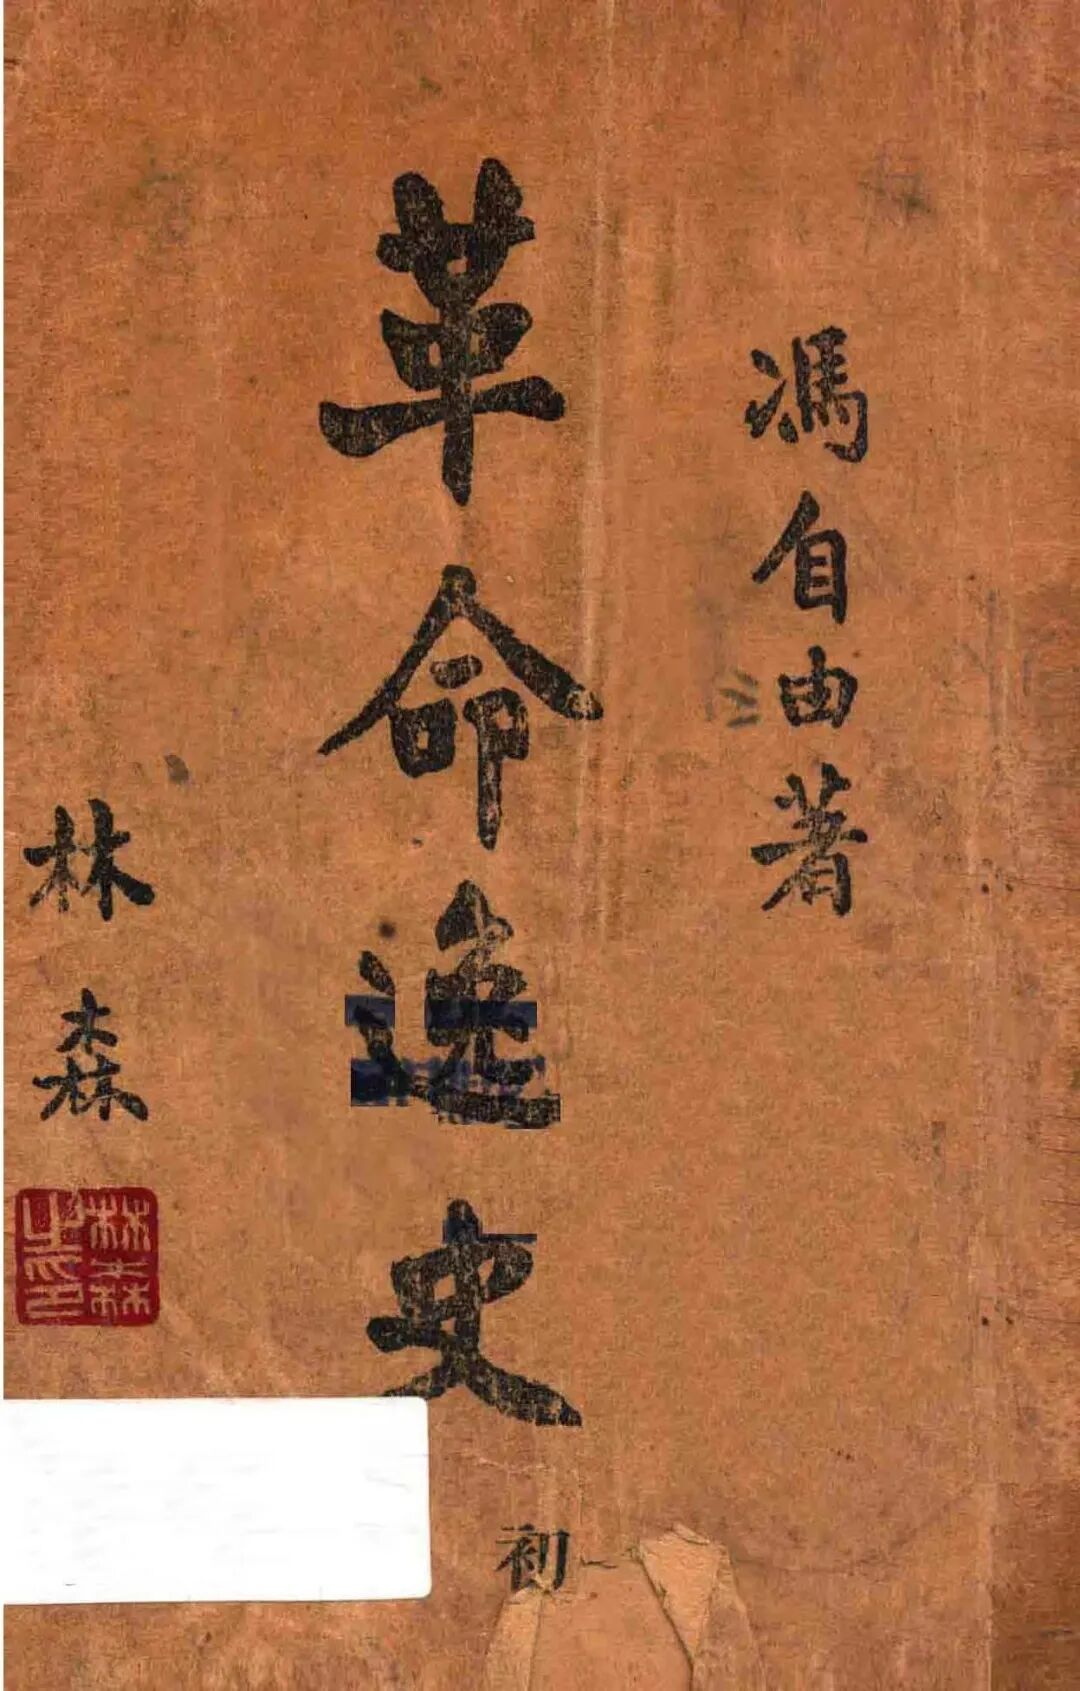 馮自由著
革命逸史
初
林森
林森之印